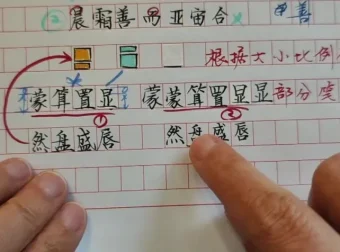 ② 晨霜善雨亚宙合 善
根据大小比例
蒙算置显 蒙蒙算置显显部分变
① ②
然盘盛唇 然盘盛唇